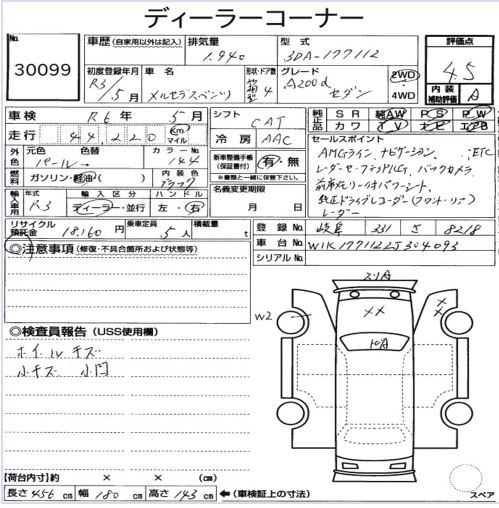 ディーラーコーナー
No. 30099
車歴 (自家用以外は記入)
排気量 1.940
型式 3DA-177112
評価点 4.5
内装補助評価 A
初度登録年月 R3/5月
車名 メルセデスベンツ
形状・ドア数 4
グレード A200d セダン
2WD・4WD
車検 R6年 5月
シフト CAT
純正品 SR AW PS PW
カワ TV エB
走行 44,220 km マイル
冷房 AAC
外色 元色 パール 色替 カラーNo. 144
新車整備手帳(保証書付) 有・無
※書類と一緒に保管下さい
セールスポイント
AMGライン、ナビゲーション、ETC
レーダーセーフティPKG、バックカメラ
前席メモリー付パワーシート、
純正ドライブレコーダー(フロント・リア)
レーダー
燃料 ガソリン・軽油・( )
内装色 ブラック
名義変更期限
月 日
輸入車用 年式 R3
輸入区分 ディーラー・並行
ハンドル 左・右
リサイクル預託金 18,160円
乗車定員 5人
積載量 t
登録No. 岐阜 331 さ 8218
車台No. W1K1771122J304093
シリアルNo.
◎注意事項 (修復・不具合箇所および状態等)
2リA
W2
××
××
10A
◎検査員報告 (USS使用欄)
ホイールキズ
小キズ 小凹
【荷台内寸】約 × × (cm)
長さ 456 cm 幅 180 cm 高さ 143 cm ←(車検証上の寸法)
スペア